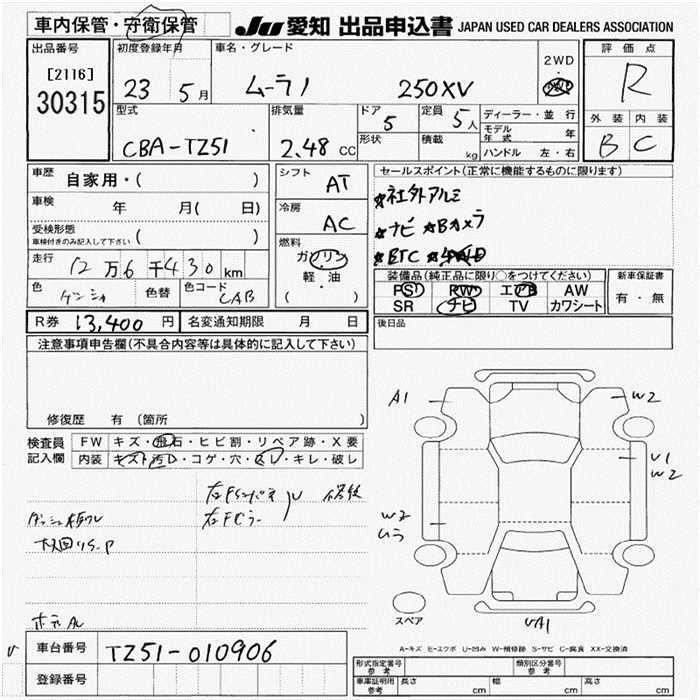 車内保管・守衛保管
JU 愛知 出品申込書 JAPAN USED CAR DEALERS ASSOCIATION
出品番号
[2116]
30315
初度登録年月
23 5月
車名・グレード
ムーラノ 250XV
2WD
評価点
R
外装 内装
B C
型式
CBA-TZ51
排気量
2.48 CC
ドア
5
形状
定員
5人
積載
kg
ディーラー・並行
モデル年式 年
ハンドル 左・右
車歴 自家用・( )
車検 年 月( 日)
受検形態
車検付きのみ記入して下さい ( )
走行 12万6千430km
色 ゲンシャ 色替 色コード CAB
シフト AT
冷房 AC
燃料
ガソリン
軽・油
( )
セールスポイント(正常に機能するものに限ります)
★社外アルミ
★ナビ ★Bカメラ
★ETC
装備品(純正品に限り○をつけてください)
PS PW エアB AW
SR ナビ TV カワシート
新車保証書
有・無
R券 13,400円 名変通知期限 月 日
後日品
注意事項申告欄(不具合内容等は具体的に記入して下さい)
修復歴 有(箇所 )
検査員記入欄
FW キズ・飛石・ヒビ割・リペア跡・X要
内装 キズ・汚レ・コゲ・穴・スレ・キレ・破レ
A1
W2
U1
W2
W2
ムラ
UA1
スペア
A-キズ E-エクボ U-凹み W-補修跡 S-サビ C-腐食 XX-交換済
車台番号 TZ51-010906
登録番号
形式指定番号 参考
類別区分番号 参考
車庫証明用 参考 長さ cm 幅 cm 高さ cm